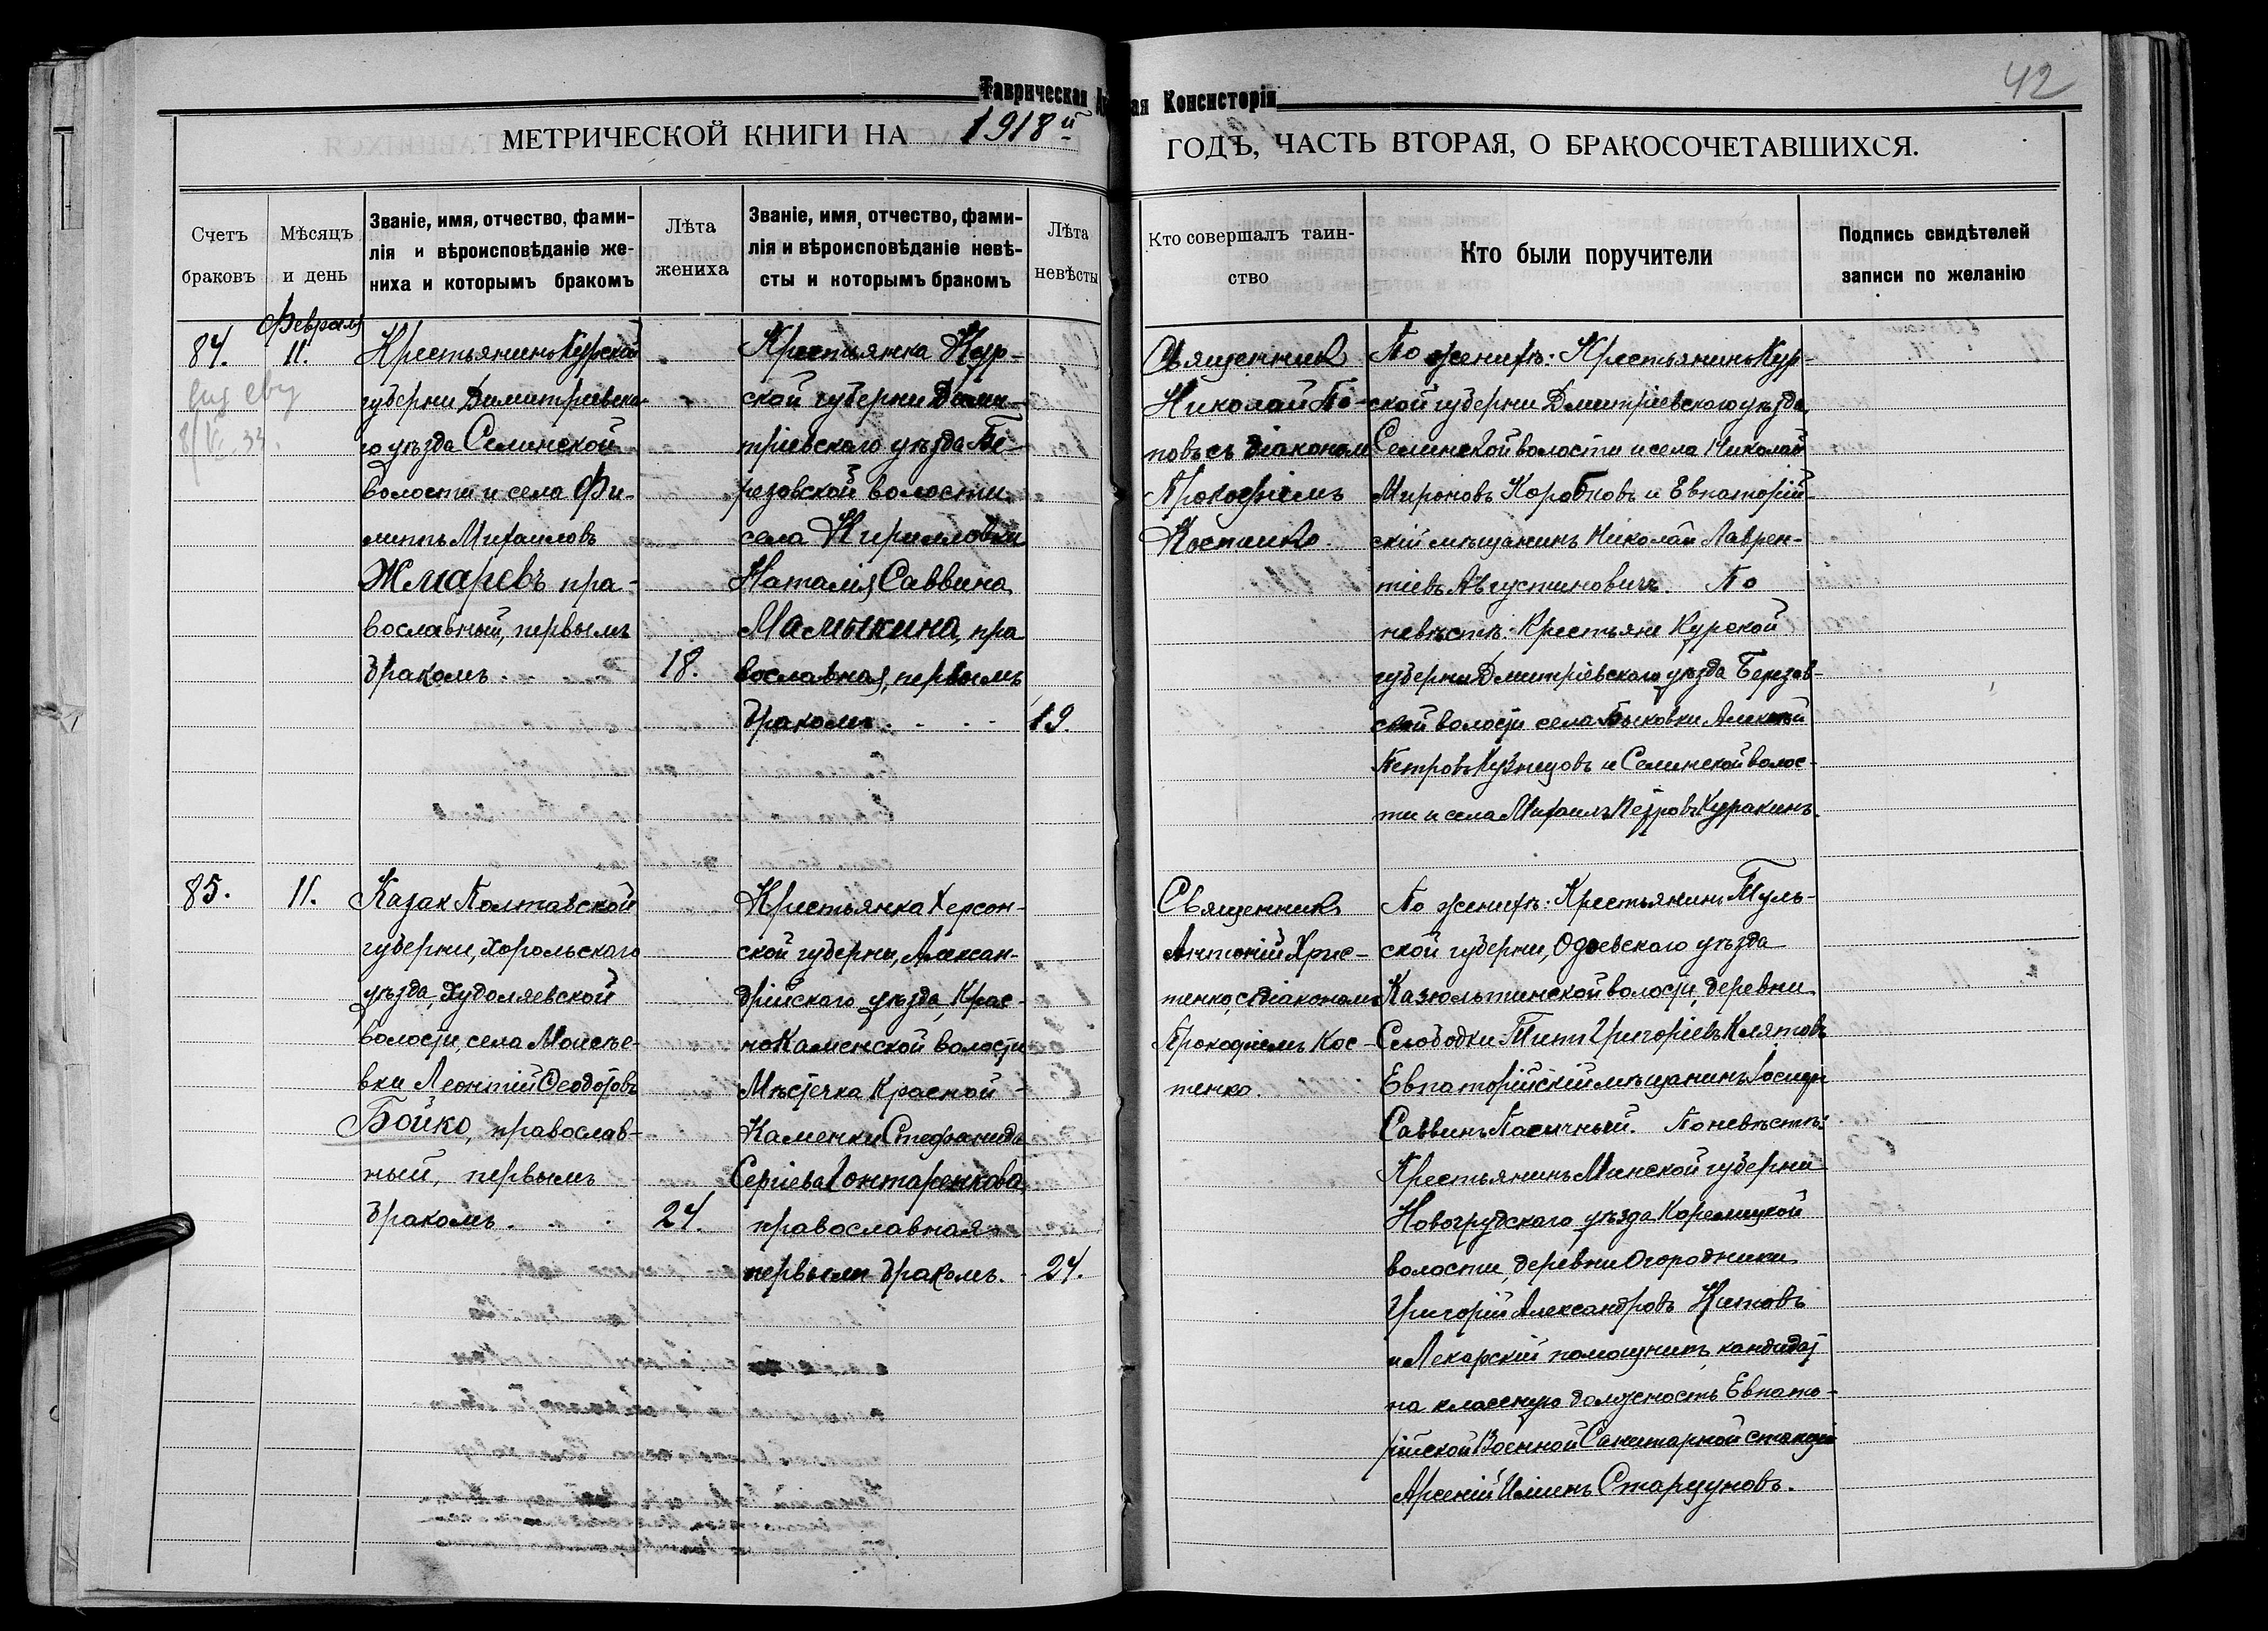 Таврическая
ая Консисторія
42
МЕТРИЧЕСКОЙ КНИГИ НА 1918й
ГОДЪ, ЧАСТЬ ВТОРАЯ, О БРАКОСОЧЕТАВШИХСЯ.
Счетъ
браковъ
Мѣсяцъ
и день
Званіе, имя, отчество, фами-
лія и вѣроисповѣданіе же-
ниха и которымъ бракомъ
Лѣта
жениха
Званіе, имя, отчество, фами-
лія и вѣроисповѣданіе невѣ-
сты и которымъ бракомъ
Лѣта
невѣсты
Кто совершалъ таин-
ство
Кто были поручители
Подпись свидѣтелей
записи по желанію
Февраля
84.
11.
Крестьянинъ Курской
губерни Димитріевска-
го уѣзда Селинской
волости и села Фи-
липпъ Михаиловъ
Жмаревъ пра-
вославный, первымъ
бракомъ
18.
Крестьянка Кур-
ской губерни Дими-
тріевскаго уѣзда Бе-
резовской волости
села Кирилловки
Наталія Саввина
Мамыкина, пра
вославная, первымъ
бракомъ
19.
Священникъ
Николай По-
повъ съ діакономъ
Прокофіемъ
По женихѣ: Крестьянинъ Кур-
ской губерни Дмитріевскаго уѣзда
Селинской волости и села Николай
Мироновъ Коробковъ и Евпаторій-
скій мѣщанинъ Николай Лаврен-
тіевъ Августиновичъ. По
невѣстѣ: Крестьяне Курской
губерни Дмитріевскаго уѣзда Березов-
ской волости села Быковки Алексѣй
Петровъ Кузнецовъ и Селинской волос-
ти и села Михаилъ Петровъ Куракинъ.
85.
11.
Казак Полтавской
губерни, Хорольскаго
уѣзда, Худолѣевской
волости, села Моисѣе-
вки Леонтій Ѳеодотовъ
Бойко, православ-
ный, первымъ
бракомъ.
24.
Крестьянка Херсон-
ской губерни, Алексан-
дрійскаго уѣзда, Крас-
нокаменской волости
Мѣстечка Красной
Каменки Стефанида
Сергіева Гонтаренкова,
православная
первымъ бракомъ.
24.
Священникъ
Антоній Хрис-
тенко, съ діакономъ
Прокофіемъ Кос-
тенко.
По женихѣ: Крестьянинъ Туль-
ской губерни, Одоевскаго уѣзда
волости, деревни
Слободки Титъ Григоріевъ
Евпаторійскій мѣщанинъ Іосифъ
Саввинъ Пасичный. По невѣстѣ:
Крестьянинъ Минской губерни
Новогрудскаго уѣзда Корелицкой
волости, деревни Огородники
Григорій Александровъ Китовъ
и Лекарскій помощникъ, кандидат
на классную должность Евпато-
рійской Военной Санитарной станціи
Арсеній Ильинъ Старцуновъ.